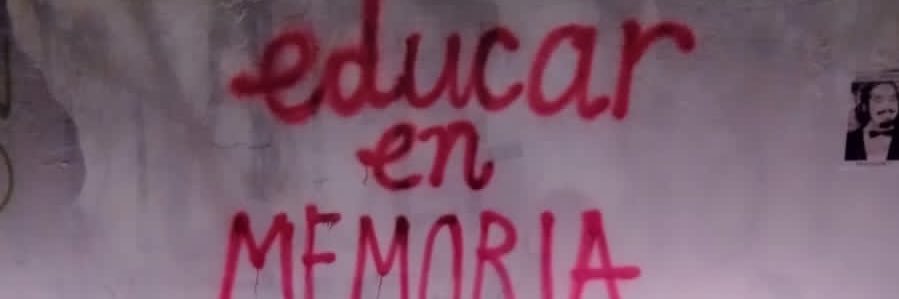 educar
en
MEMORIA